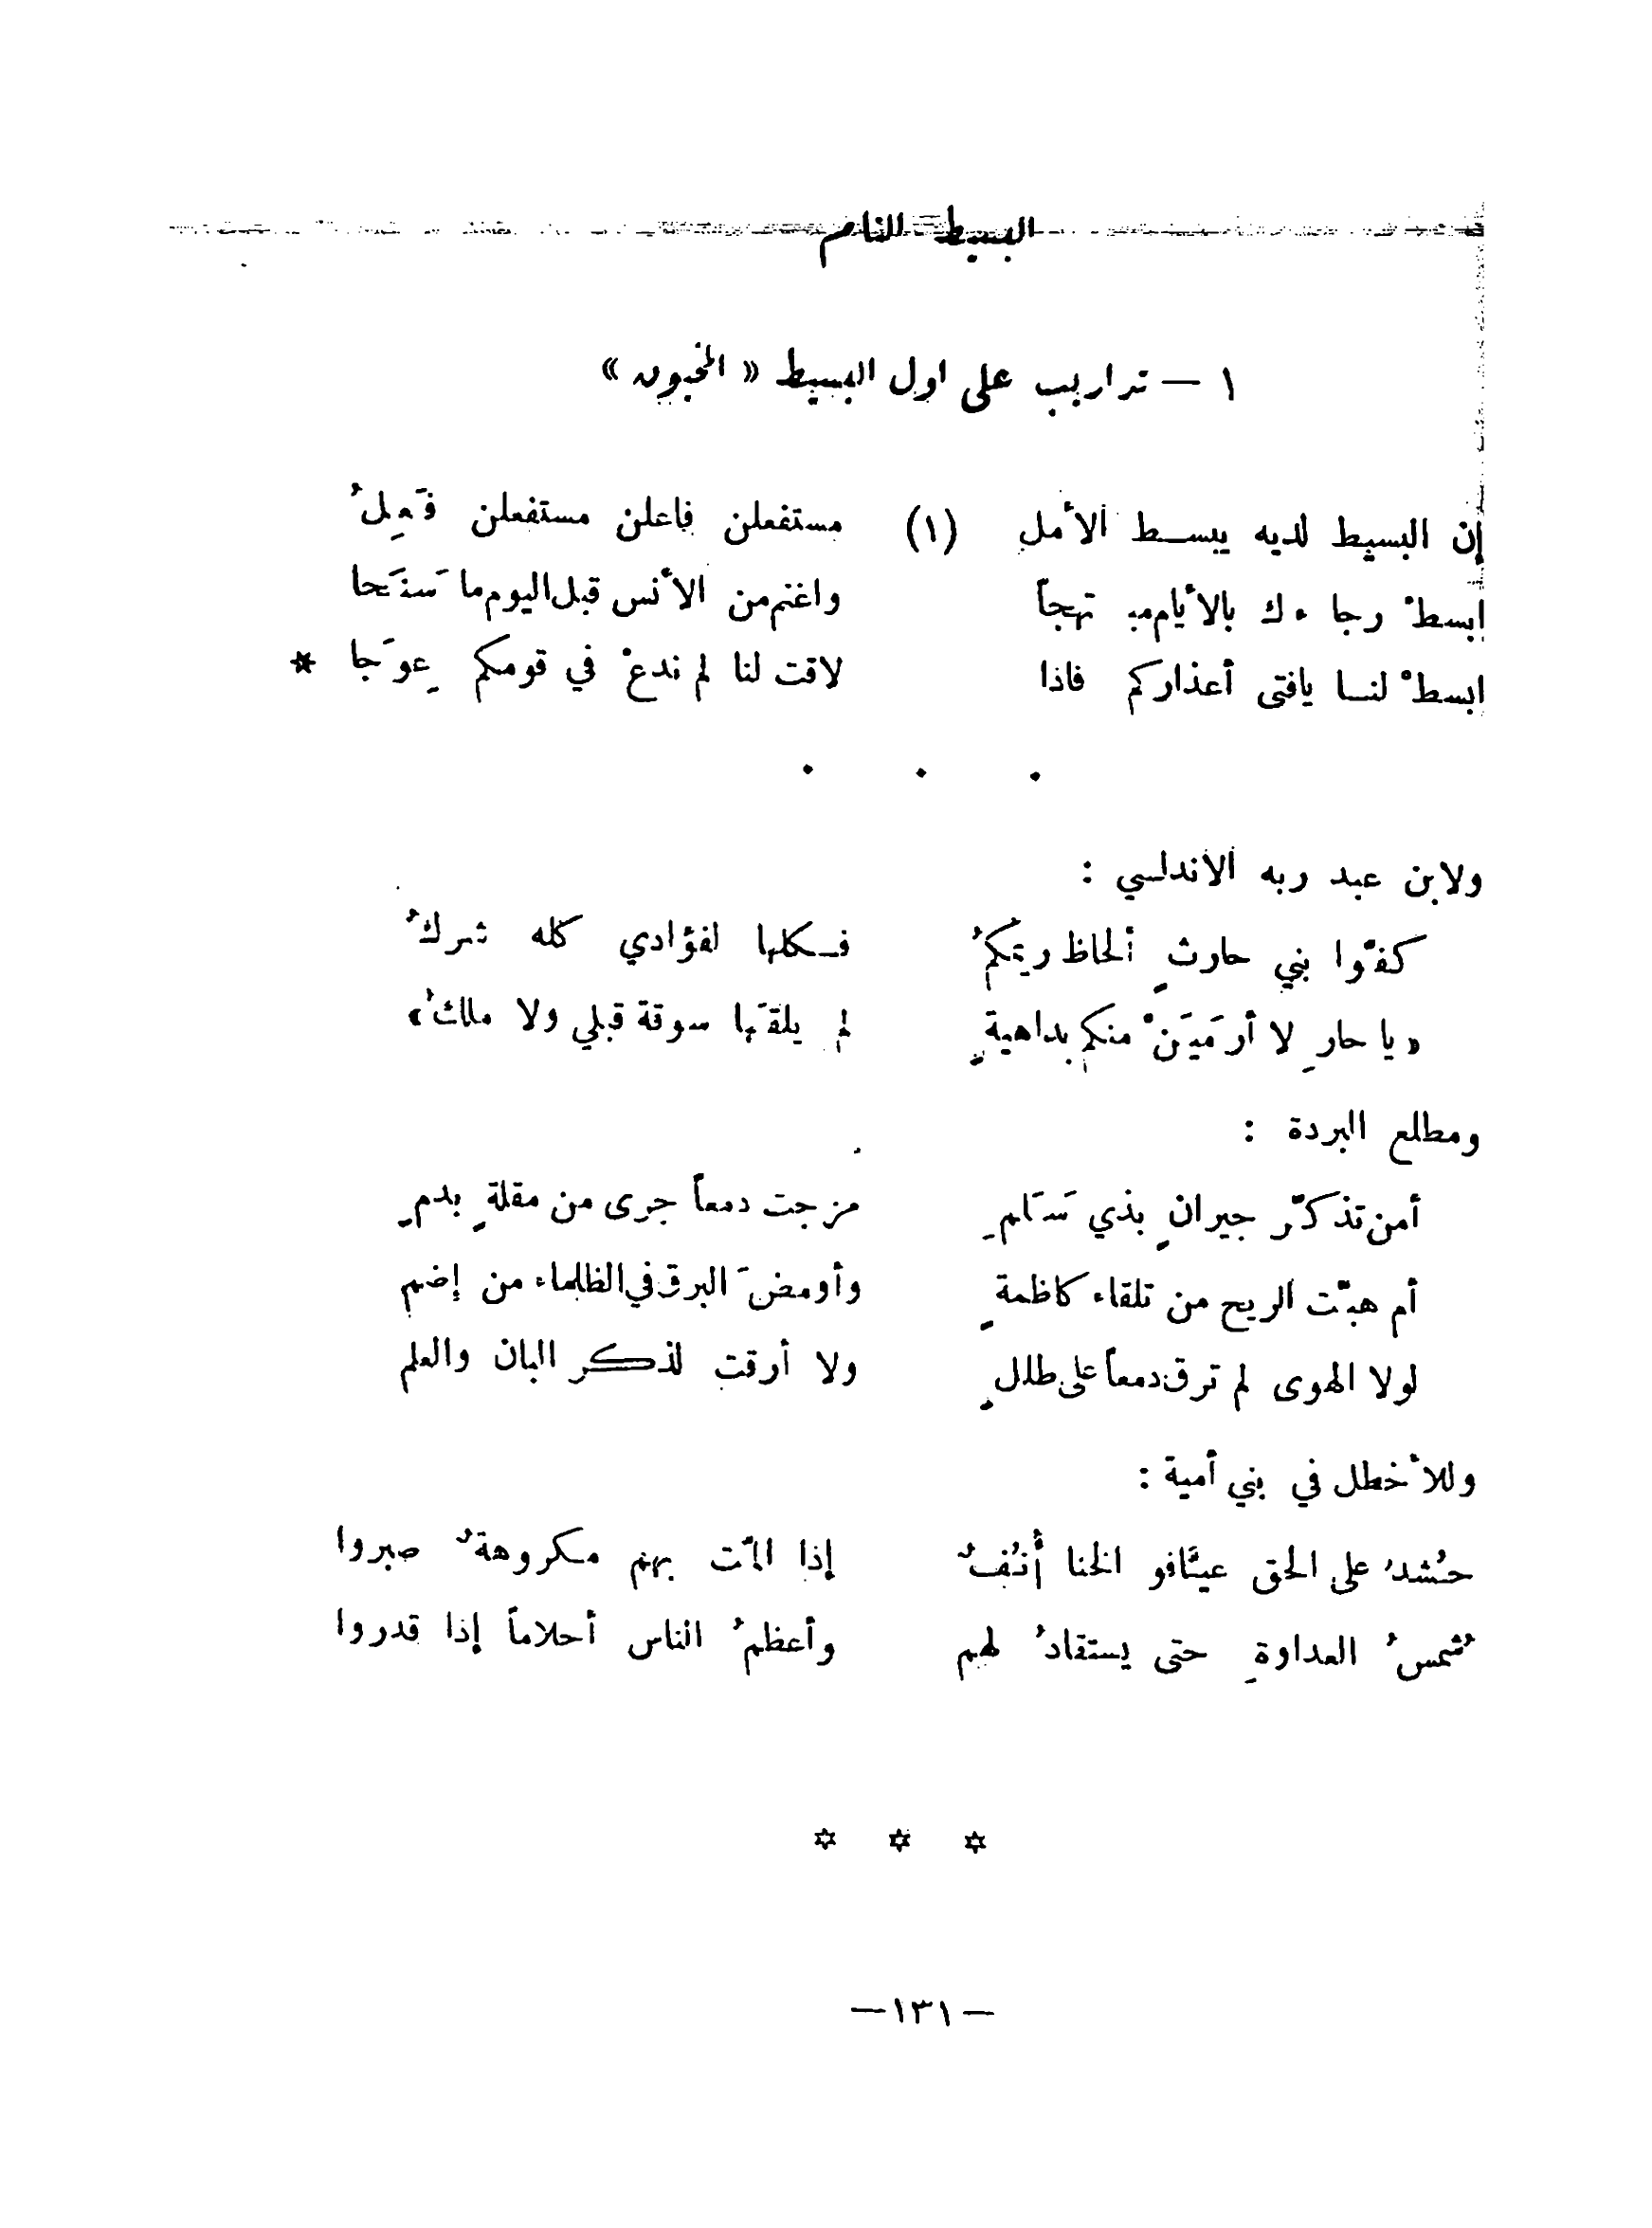 البسيط التام
١ — تداريب على اول البسيط « المخبون »
إن البسيط لديه يبسط الأمل (١) مستفعلن فاعلن مستفعلن فَعِلُ
ابسطْ رجاءك بالأيام مبتهجاً واغنم من الأنس قبل اليوم ما سَنَحا
ابسطْ لنا يافتى أعذاركم فاذا لاقت لنا لم ندعْ في قومكم عِوَجا *
. . .
ولابن عبد ربه الأندلسي :
كفّوا بني حارثٍ ألحاظ ريمكمُ فكلها لفؤادي كله شركُ
« يا حارِ لا أرمَيَنْ منكم بداهيةٍ لم يلقَها سوقة قبلي ولا ملكُ »
ومطلع البردة :
أمن تذكّر جيرانٍ بذي سَلَمِ مزجت دمعاً جرى من مقلةٍ بدمِ
أم هبّت الريح من تلقاء كاظمةٍ وأومضَ البرق في الظلماء من إضم
لولا الهوى لم ترق دمعاً على طللٍ ولا أرقت لذكر البان والعلم
وللأخطل في بني أمية :
حُشدٌ على الحق عيَّافو الخنا أُنُفٌ إذا ألمّت بهم مكروهةٌ صبروا
شُمسُ العداوةِ حتى يستقادُ لهم وأعظمُ الناس أحلاماً إذا قدروا
☆ ☆ ☆
— ١٣١ —